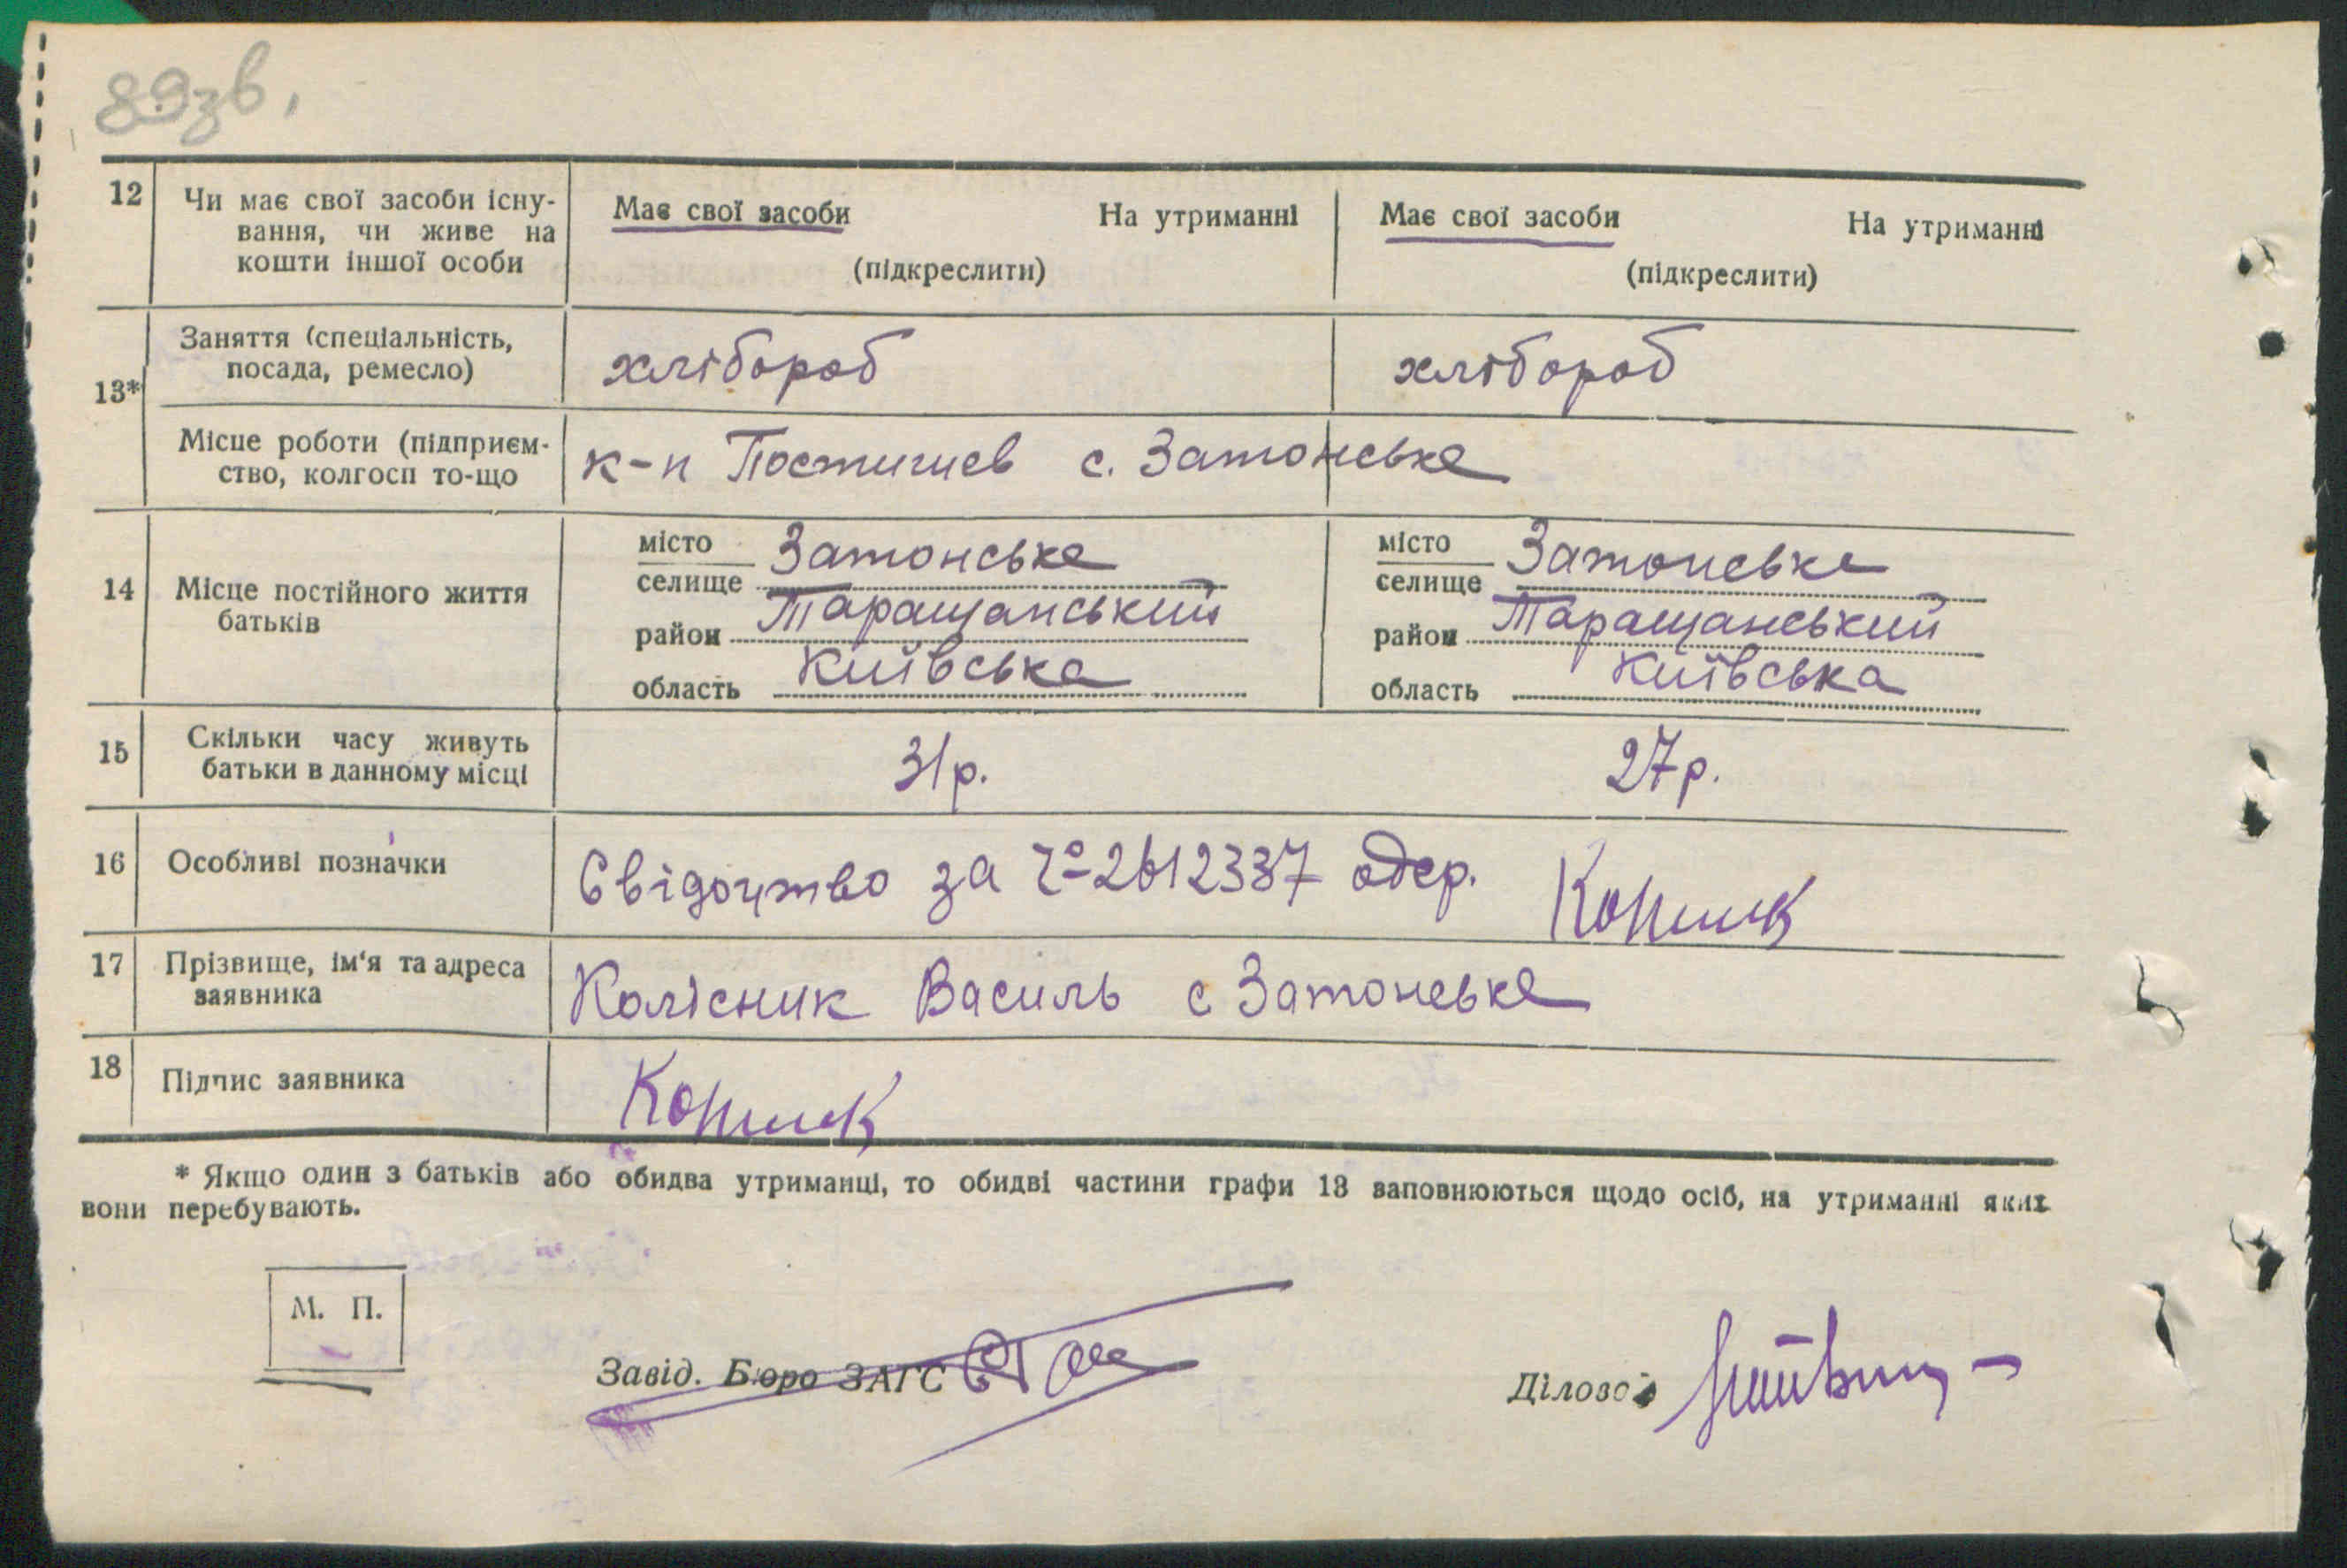 89зв.
12 Чи має свої засоби існу-
вання, чи живе на
кошти іншої особи
Має свої засоби На утриманні
(підкреслити)
Має свої засоби На утриманні
(підкреслити)
13*
Заняття (спеціальність,
посада, ремесло)
хлібороб
хлібороб
Місце роботи (підприєм-
ство, колгосп то-що
к-п Постишев с. Затонське
14 Місце постійного життя
батьків
місто
селище Затонське
район Таращанський
область Київська
місто
селище Затонське
район Таращанський
область Київська
15 Скільки часу живуть
батьки в данному місці
31р.
27р.
16 Особливі позначки
Свідоцтво за № 2612337 одер.
17 Прізвище, ім'я та адреса
заявника
Колісник Василь с Затонське
18 Підпис заявника
* Якщо один з батьків або обидва утриманці, то обидві частини графи 13 заповнюються щодо осіб, на утриманні яких
вони перебувають.
М. П.
Завід. Бюро ЗАГС
Діловод